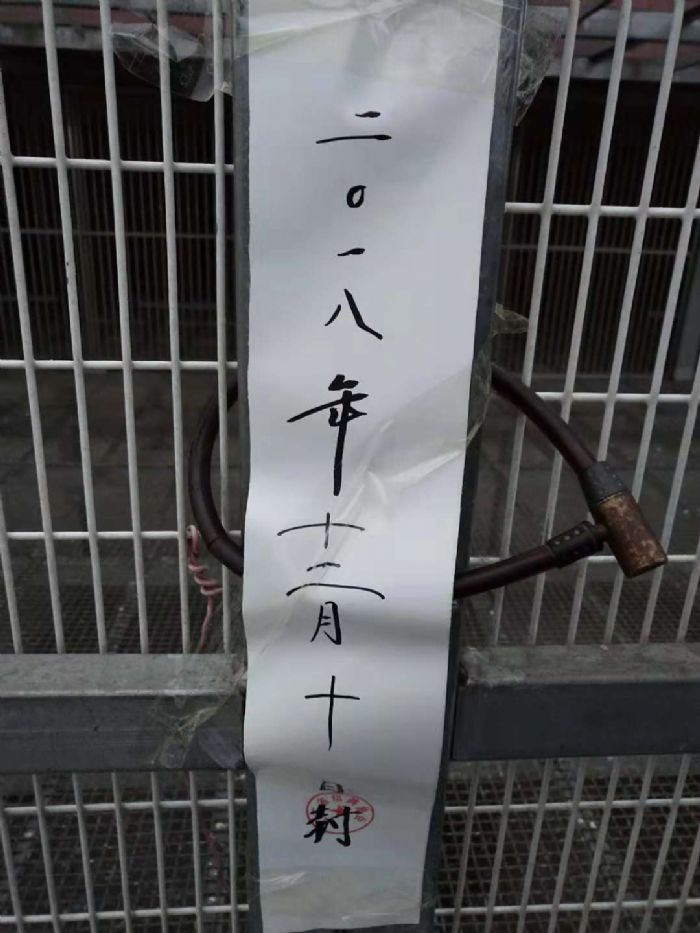 二0一八年十二月十日封